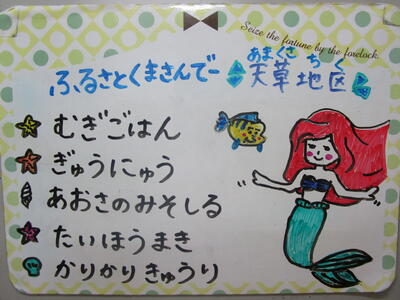 Seize the fortune by the forelock.
ふるさとくまさんデー
あまくさ ちく
天草地区
むぎごはん
ぎゅうにゅう
あおさのみそしる
たいほうまき
かりかりきゅうり